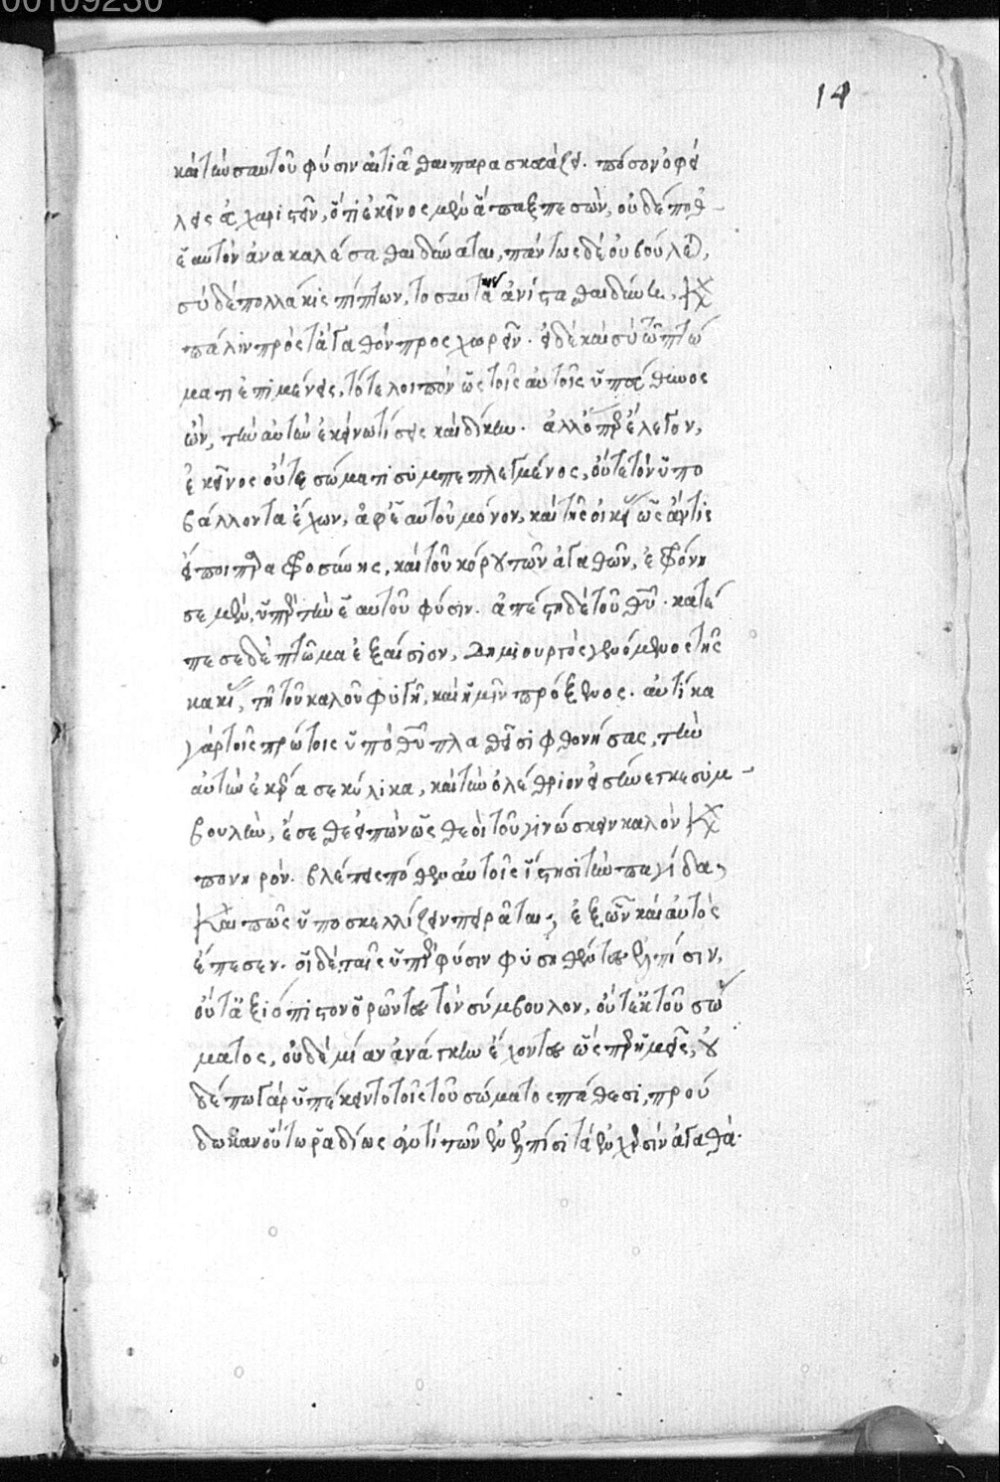 00109230
14
καὶ τὴν σαυτοῦ φύσιν αἰτιᾶσθαι παρασκευάζει. πόσον ὀφεί
λεις εὐχαριστεῖν, ὅτι ἐκεῖνος μὲν ἅπαξ πεσὼν, οὐδέποθ
ἑαυτὸν ἀνακαλέσασθαι δύναται, πάντως δὲ οὐ βούλεται,
σὺ δὲ πολλάκις πίπτων, τοσαυτάκις ἀνίστασθαι δύνασαι, καὶ
πάλιν πρὸς τἀγαθὸν προσχωρεῖν. εἰ δὲ καὶ σὺ τῷ πτώ
ματι ἐπιμένεις, τότε λοιπὸν ὡς τοῖς αὐτοῖς ὑπεύθυνος
ὢν, τὴν αὐτὴν ἐκείνῳ τίσεις καὶ δίκην. ἀλλ' ὅπερ ἔλεγον,
ἐκεῖνος οὔτε σώματι συμπεπλεγμένος, οὔτε τὸν ὑπο
βάλλοντα ἔχων, ἀφ' ἑαυτοῦ μόνον, καὶ τῆς οἰκείας ὡς ἄν τις
εἴποι παραφροσύνης, καὶ τοῦ κόρου τῶν ἀγαθῶν, ἐφρόνη
σε μὲν, ὑπὲρ τὴν ἑαυτοῦ φύσιν. ἀπέστη δὲ τοῦ θεοῦ. κατέ
πεσε δὲ πτῶμα ἐξαίσιον, δημιουργὸς γενόμενος τῆς
κακίας, τῇ τοῦ καλοῦ φυγῇ, καὶ ἡμῖν πρόξενος. αὐτίκα
γὰρ τοῖς πρώτοις ὑπὸ θεοῦ πλασθεῖσι φθονήσας, τὴν
αὐτὴν ἐκέρασε κύλικα, καὶ τὴν ὀλέθριον εἰσήνεγκε συμ
βουλὴν, ἔσεσθε εἰπὼν ὡς θεοὶ τοῦ γινώσκειν καλὸν καὶ
πονηρόν. βλέπεις πόθεν αὐτοῖς ἵστησι τὴν παγίδα;
Καὶ πῶς ὑποσκελίζειν πειρᾶται; ἐξ ὧν καὶ αὐτὸς
ἔπεσεν. οἱ δὲ ταῖς ὑπὲρ φύσιν φυσηθέντες ἐλπίσιν,
οὔτ' ἀξιόπιστον ὁρῶντες τὸν σύμβουλον, οὔτε ἐκ τοῦ σώ
ματος, οὐδεμίαν ἀνάγκην ἔχοντες ὥσπερ ἡμεῖς, οὐ
δέπω γὰρ ὑπέκειντο τοῖς τοῦ σώματος πάθεσι, πρού
δωκαν οὕτω ῥαδίως ἀντὶ τῶν ἐν ἐλπίσι τὰ ἐν χερσὶν ἀγαθά.